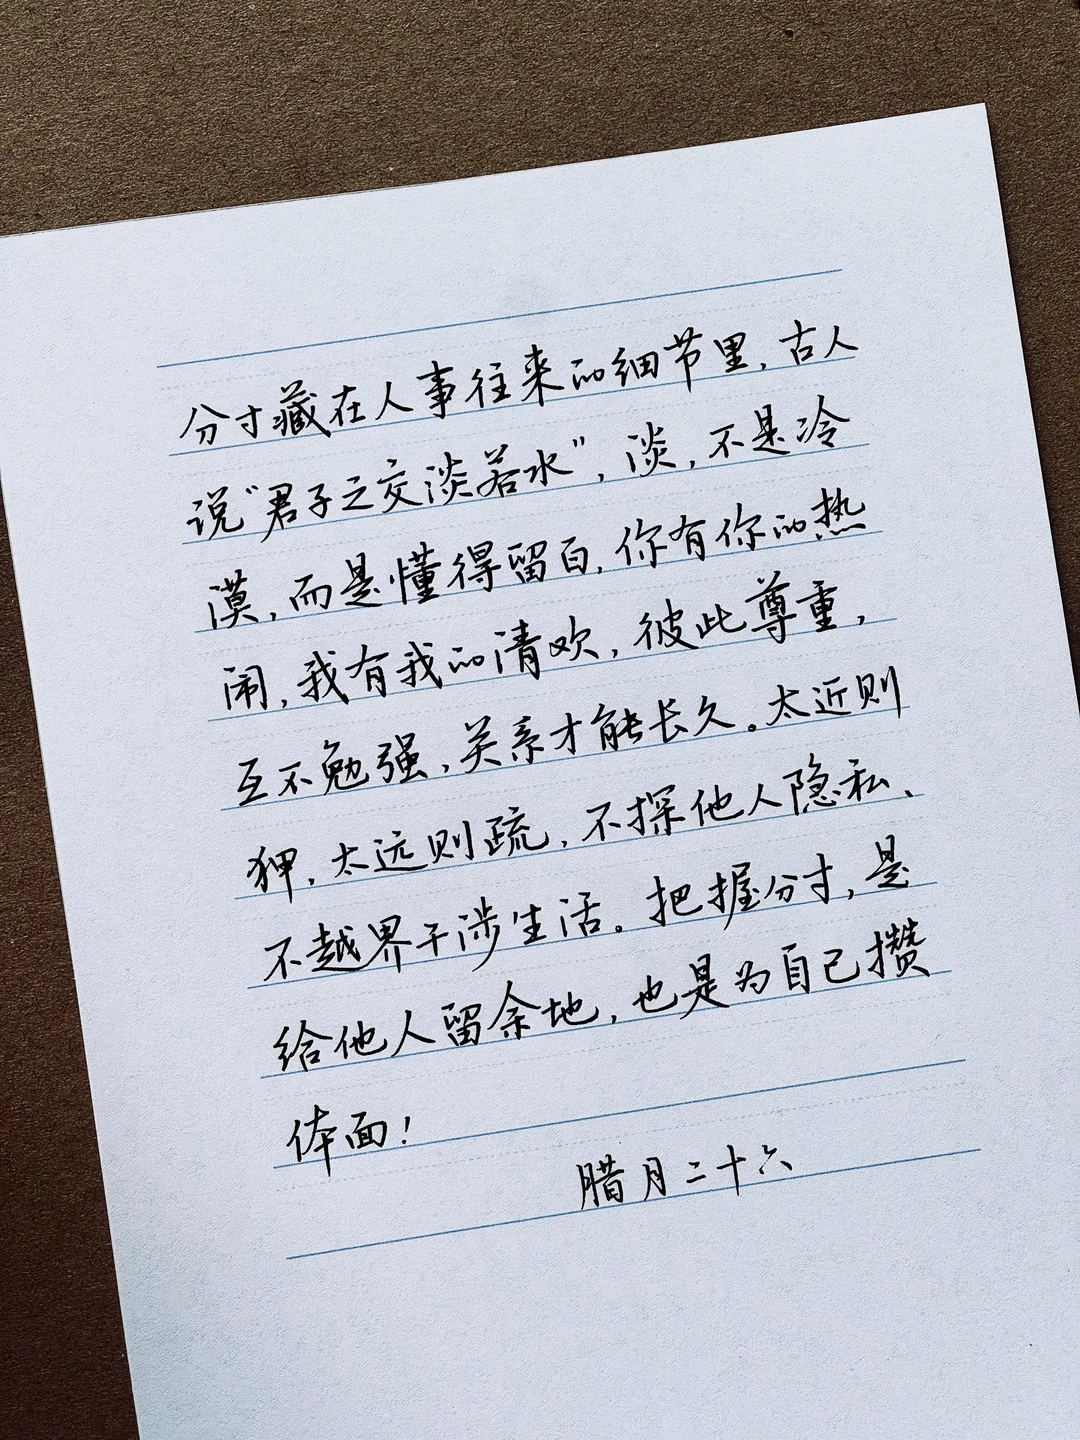 分寸藏在人事往来的细节里，古人
说“君子之交淡若水”，淡，不是冷
漠，而是懂得留白，你有你的热
闹，我有我的清欢，彼此尊重，
互不勉强，关系才能长久。太近则
狎，太远则疏，不探他人隐私、
不越界干涉生活。把握分寸，是
给他人留余地，也是为自己攒
体面！
腊月二十六